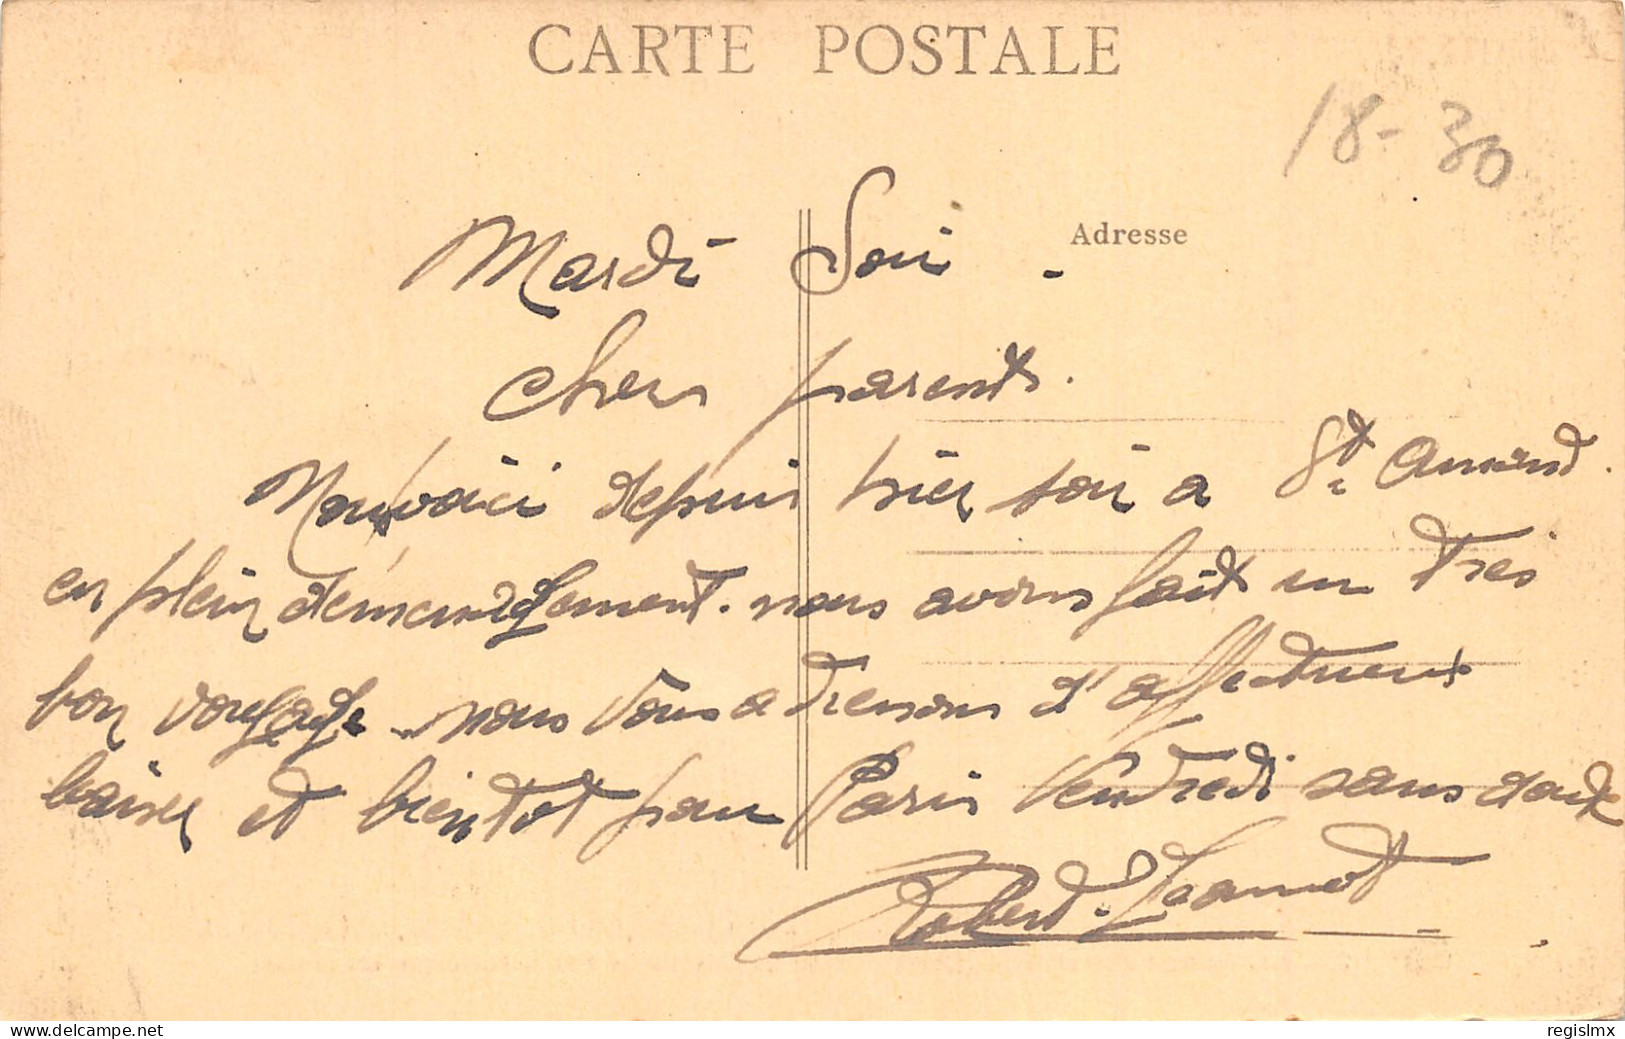 CARTE POSTALE
18-30
Adresse
Mardi Soir -
Chers parents.
Nous voici depuis hier soir a St Amand.
en plein déménagement. nous avons fait un très
bon voyage. nous vous adressons d'affectueux
baisers et bientot pour Paris Vendredi sans doute
Robert. Jeannot
www.delcampe.net
regislmx